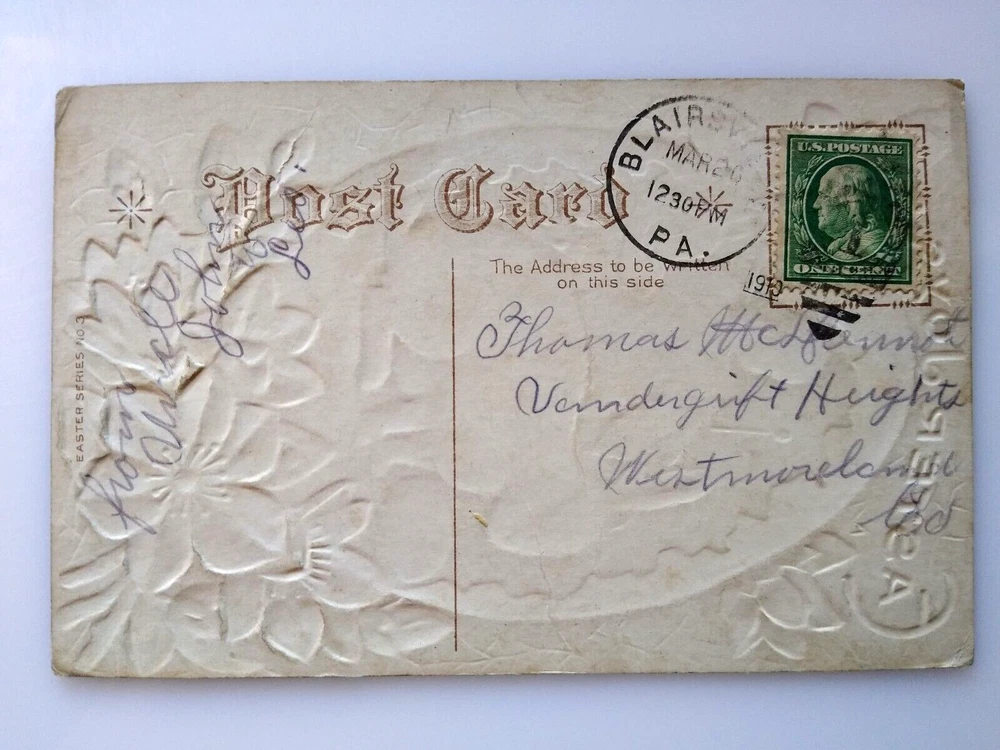 Post Card
BLAIRSV
MAR 20
12 30 PM
PA.
1910
U.S. POSTAGE
ONE CENT
The Address to be written
on this side
EASTER SERIES NO 3
from
Uncle
John
Thomas
Vandergrift Heights
Westmoreland
Co